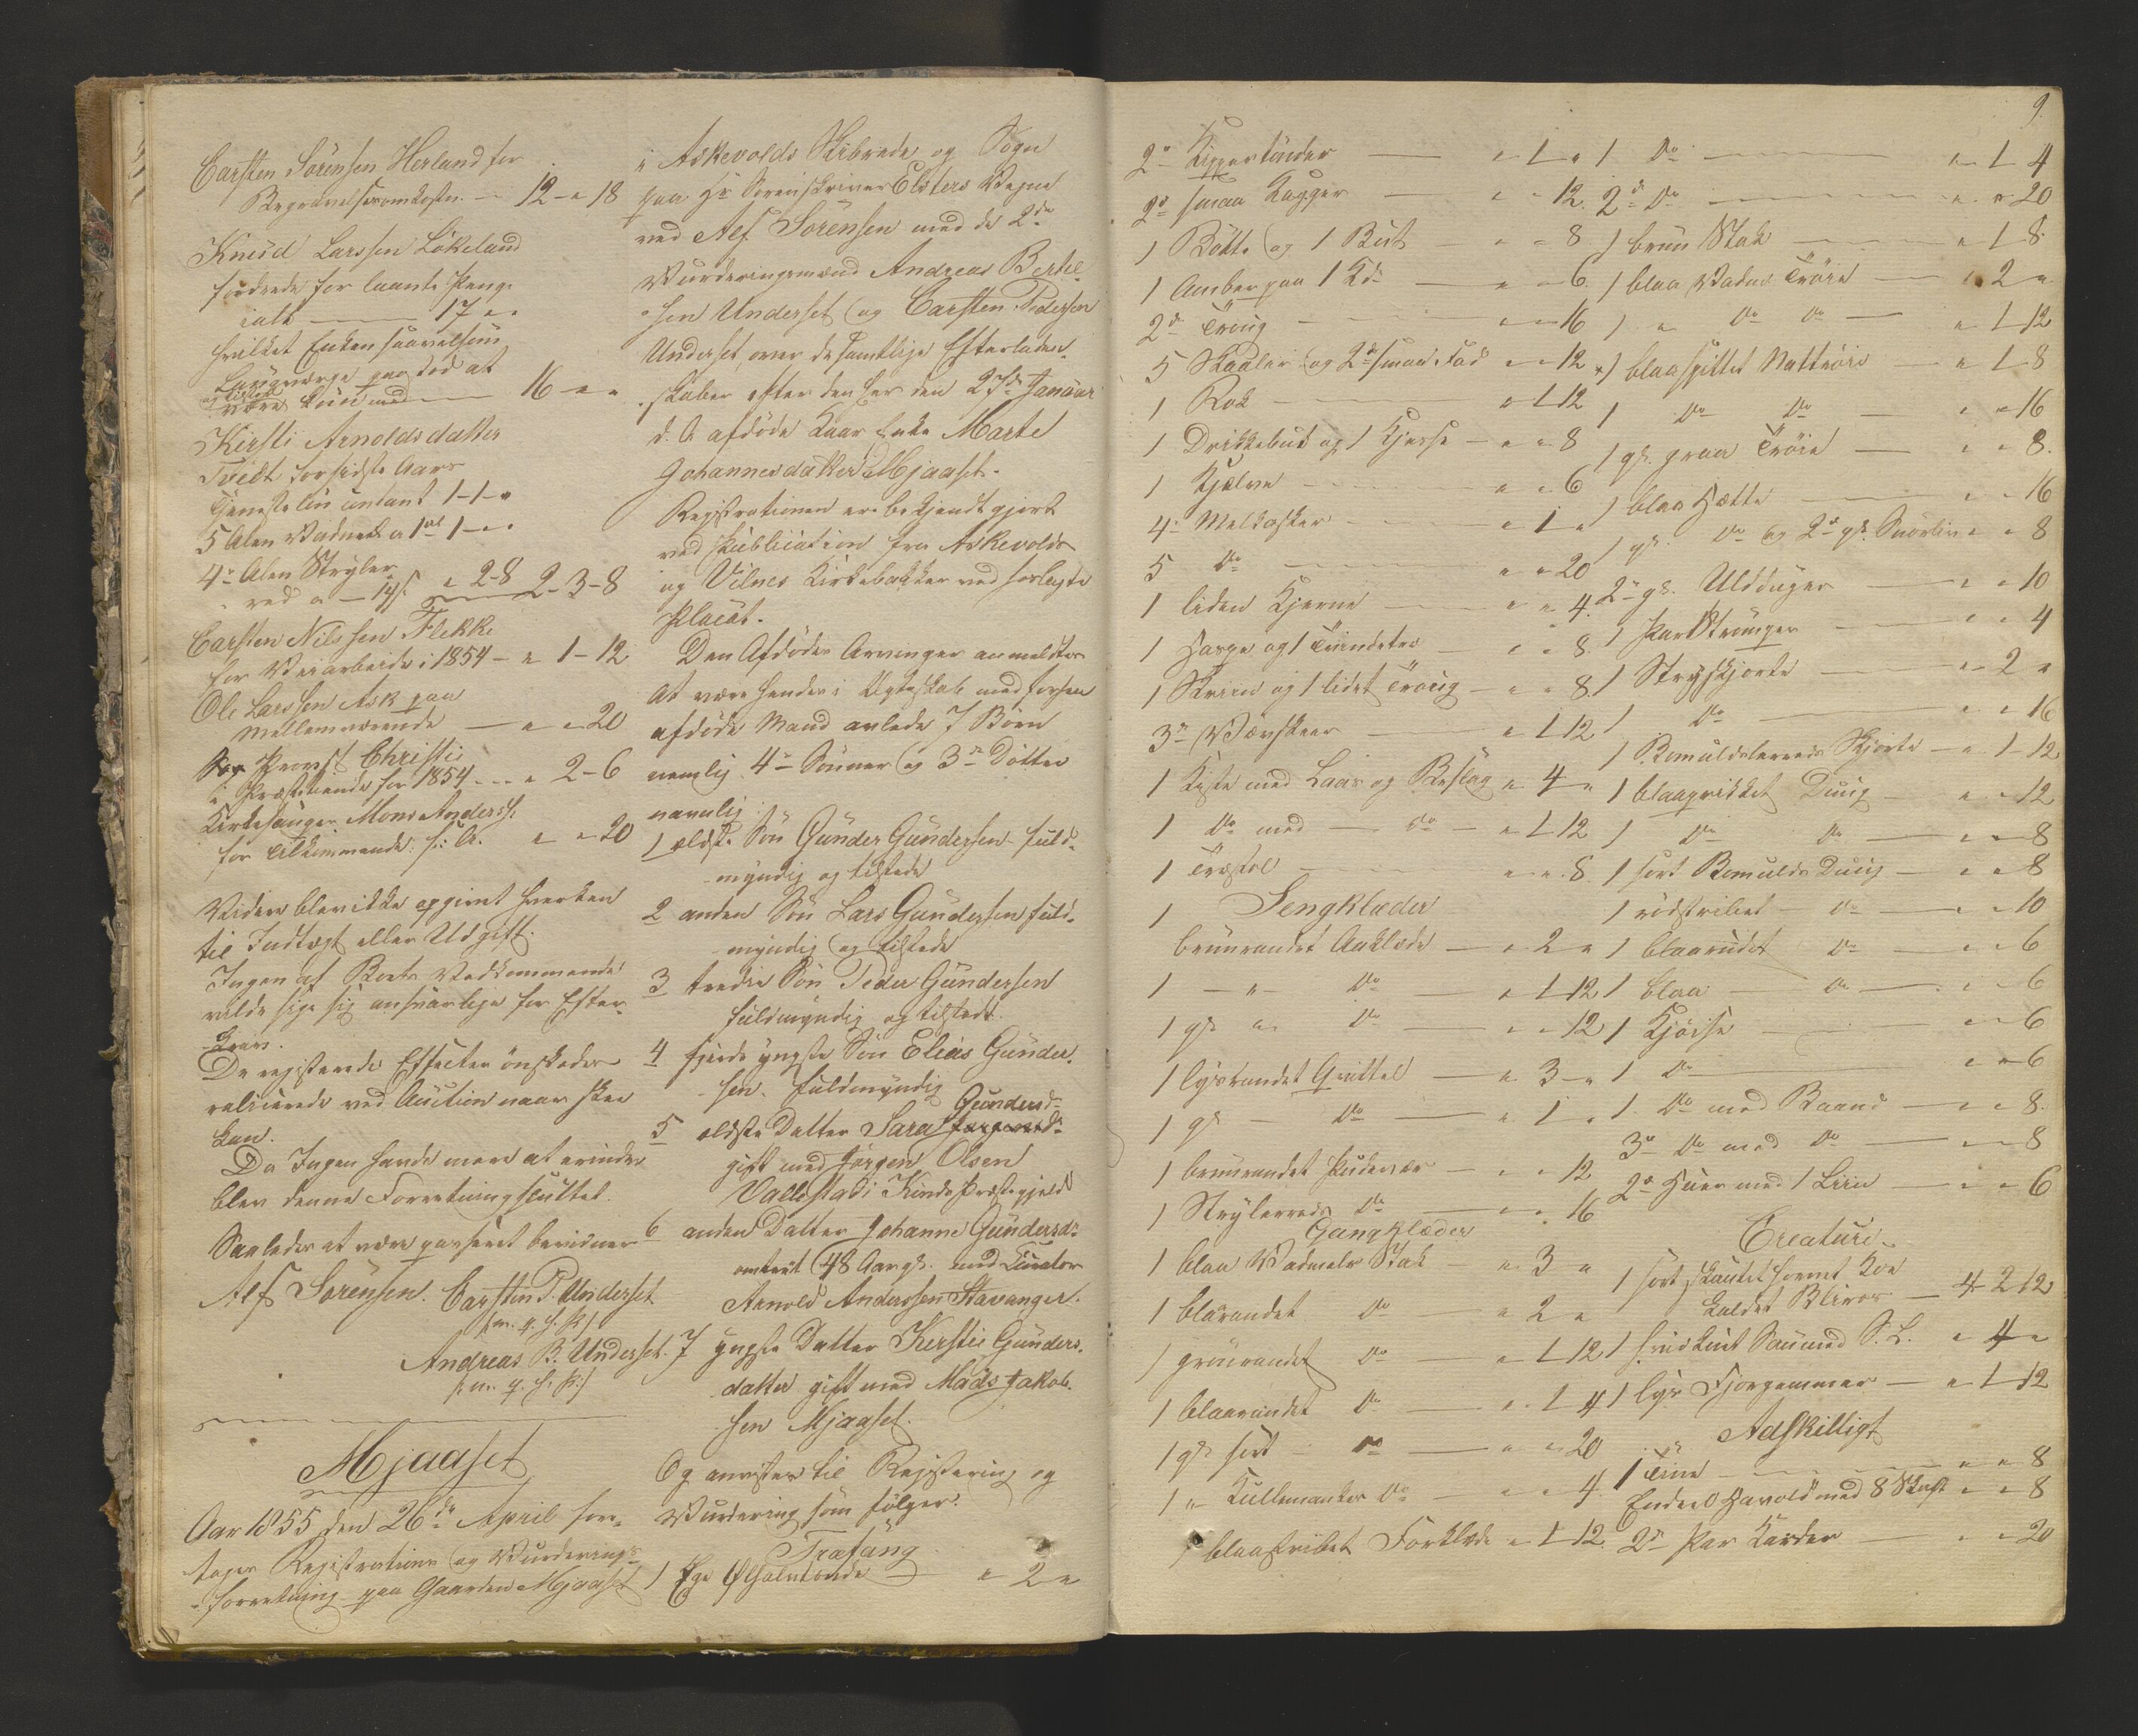 Carsten Sörensen Herland for
Begravelsesomkostn. — 12 - " 18
Knud Larssen Lökeland
fordrede for laante Penge
ialt — 17 " "
hvilket Enken saavelsom
Laugværge paastod at
og tilstod
være kun med — 16 - " "
Kirsti Arnoldsdatter
Tvedt for sidste Aars
Tjenesteløn contant 1 - 1 - "
5 Alen Vadmel a 1 1 - " "
4 Alen Strylær
red a — 14 s " 2-8 2-3-8
Carsten Nilssen Flekke
for Veiarbeide i 1854 - " 1-12
Ole Larssen Ask paa
Mellemværende — " " 20
Provst Christie
i Præstetiende for 1854 - " 2-6
Kirkesanger Mons Anderss.
for Tilkommende f: A. " " 20
Videre blev ikke opgivet hverken
til Indtægt eller Udgift.
Ingen af Boets Vedkommende
vilde sige sig ansvarlige for Efter-
krav.
De registerede Effecter önskedes
realiserede ved Auction naar skee
kan.
Da Ingen havde mere at erindre
blev denne Forretning sluttet.
Saaledes at være passeret bevidner
Alf Sörensen. Carsten P. Underset
(m. p. f. P.)
Andreas B. Underset.
(m. p. f. P.)
Mjaaset
Aar 1855 den 26de April fore-
tages Registrations og Vurderings-
forretning paa Gaarden Mjaaset
i Askevolds Skibrede og Sogn
paa Hr Sorenskriver Elsters Vegne
ved Alf Sörensen med de 2de
Vurderingsmænd Andreas Bertel-
sen Underset og Carsten Pedersen
Underset, over de samtlige Efterladen-
skaber efter den her den 27de Januar
d. A. afdöde Kaar Enke Marte
Johannesdatter Mjaaset.
Registrationen er bekjendtgjort
ved Publication fra Askevolds
og Vilnes Kirkebakker ved forlagte
Placat.
Den Afdödes Arvinger anmeldtes
at være hendes i Ægteskab med forhen
afdöde Mand avlede 7 Börn
nemlig 4 Sönner og 3 Döttre
navnlig
1 ældste Sön Gunder Gundersen fuld-
myndig og tilstede
2 anden Sön Lars Gundersen fuld-
myndig og tilstede
3 tredie Sön Peder Gundersen
fuldmyndig og tilstede.
4 fjerde yngste Sön Elias Gunder-
sen. fuldmyndig
Gundersd.
5 ældste Datter Sara
gift med Jörgen Olsen
Vallestad i Kinds Præstegjeld
6 anden Datter Johanne Gundersd.
omtrent 48 Aar gl. med Curator
Arnold Anderssen Stavanger.
7 yngste Datter Kerstie Gunders-
datter gift med Mads Jakob-
sen Mjaaset.
Og anvistes til Registering og
Vurdering som fölger:
Træfang
1 Ege Ølhalvtönde — " 2 "
9.
2 Kippertönder — " 1 "
2 smaa Kagger — " " 12
1 Bötte og 1 But — " " 8
1 Ambar paa 1 Kd. — " " 6
2 Troug — " " 16
5 Skaaler og 2 smaa Fad " " 12
1 Rok — " 1 12
1 Drikkebut og 1 Kjesse — " " 8
1 Kjælve — " " 6
4 Melkasker — " 1 "
5 Do — " " 20
1 liden Kjerne — " " 4
1 Harpe og 1 Tvindetre — " " 8
1 Skriin og 1 lidet Troug — " " 8
3 Vævskeer — " 1 12
1 Kiste med Laas og Beslag " 4 "
1 Do med — do — " 1 12
1 Træstol — " " 8
Sengklæder
1 bruunrandet Aaklæde — " 2 "
1 — " — Do — " 1 12
1 gl. " Do — " " 12
1 lysrandet Qvittel — " 3 "
1 gl — Do — " 1 "
1 bruunrandet Pudevær — " " 12
1 Strylerreds Do — " " 16
Gangklæder
1 blaa Vadmels Stak — " 3 "
1 blaarandet Do — " 2 "
1 grönrandet Do — " 1 12
1 blaarandet Do — " 1 4
1 gl. sort — Do — " " 20
1 " Kullemanker Do — " " 4
1 blaastribet Forklæde " 1 12
1 Do — " 1 4
2 Do — " " 20
1 bruun Stak — " 1 8
1 blaa Vadm. Tröie — " 2 "
1 " Do Do — " 1 12
1 blaaspittet Nattröie — " 1 8
1 Do Do — " " 16
1 gl. graa Tröie — " " 8
1 blaa Hætte — " " 16
1 gl. Do og 2 gl. Snörliv " " 8
2 gl. Uldduger — " " 10
1 Par Strömper — " " 4
1 Stryskjorte — " 2 "
1 Do — " " 16
1 Bomuldslerreds Skjorte — " 1-12
1 blaaprikket Duug — " " 12
1 Do Do — " " 8
1 sort Bomulds Duug — " " 8
1 rödstribet — Do — " " 10
1 blaarudet Do — " " 6
1 blaa — Do — " " 6
1 Kjöise — " " 6
1 Do — " " 6
1 Do med Baand — " " 8
3 Do med Do — " " 8
2 Huer med 1 Liin — " " 6
Creature
1 sort skautet hornet Koe
kaldet Bliros — 4 2 12
1 hvidkint Sau med S. L. " 4 "
1 lys Fjorgammer — " 1 12
Adskilligt
1 Tine — " " 8
Endeel Havold med 8 Skaft " " 8
2 Par Karder — " " 20